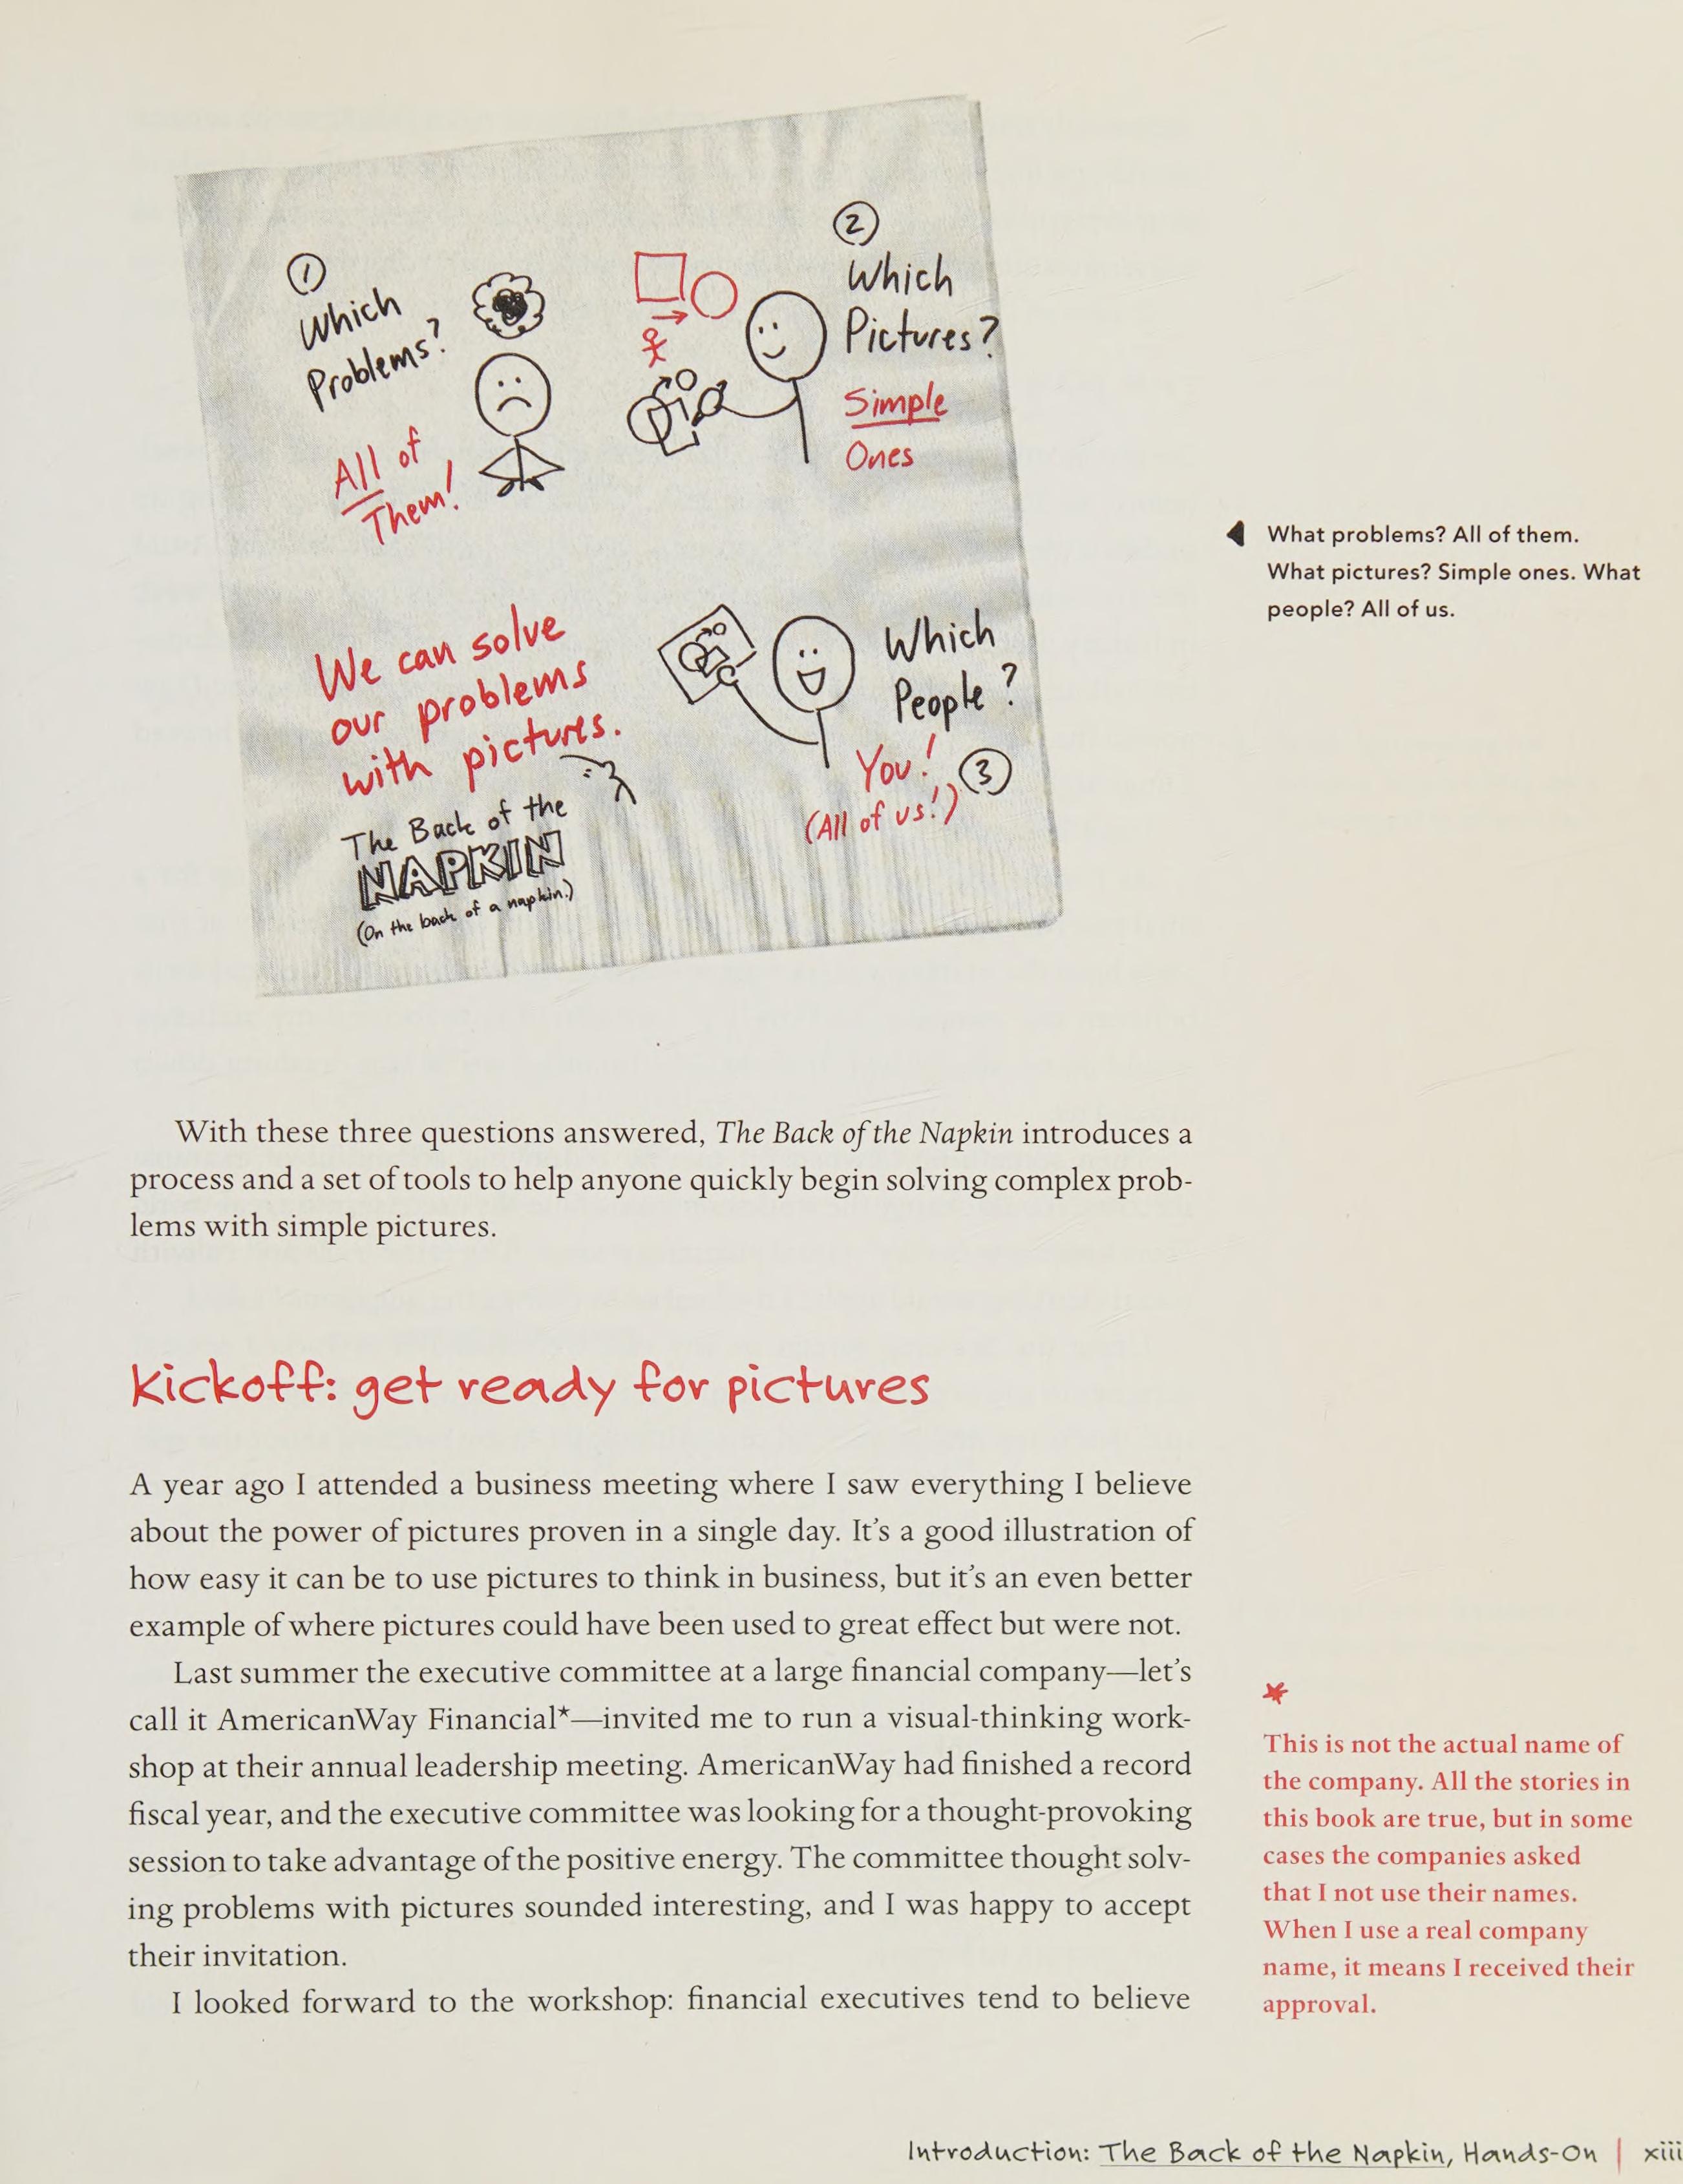 ①
Which
Problems?
All of
Them!
②
Which
Pictures?
Simple
Ones
We can solve
our problems
with pictures.
The Back of the
NAPKIN
(On the back of a napkin.)
Which
People?
You!
③
(All of us!)
What problems? All of them.
What pictures? Simple ones. What
people? All of us.
With these three questions answered, The Back of the Napkin introduces a
process and a set of tools to help anyone quickly begin solving complex prob-
lems with simple pictures.
Kickoff: get ready for pictures
A year ago I attended a business meeting where I saw everything I believe
about the power of pictures proven in a single day. It’s a good illustration of
how easy it can be to use pictures to think in business, but it’s an even better
example of where pictures could have been used to great effect but were not.
Last summer the executive committee at a large financial company—let’s
call it AmericanWay Financial*—invited me to run a visual-thinking work-
shop at their annual leadership meeting. AmericanWay had finished a record
fiscal year, and the executive committee was looking for a thought-provoking
session to take advantage of the positive energy. The committee thought solv-
ing problems with pictures sounded interesting, and I was happy to accept
their invitation.
I looked forward to the workshop: financial executives tend to believe
*
This is not the actual name of
the company. All the stories in
this book are true, but in some
cases the companies asked
that I not use their names.
When I use a real company
name, it means I received their
approval.
Introduction: The Back of the Napkin, Hands-On | xiii